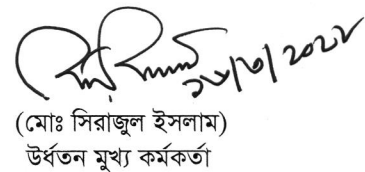 ১৮/৩/২০২২
(মোঃ সিরাজুল ইসলাম)
উর্ধতন মুখ্য কর্মকর্তা